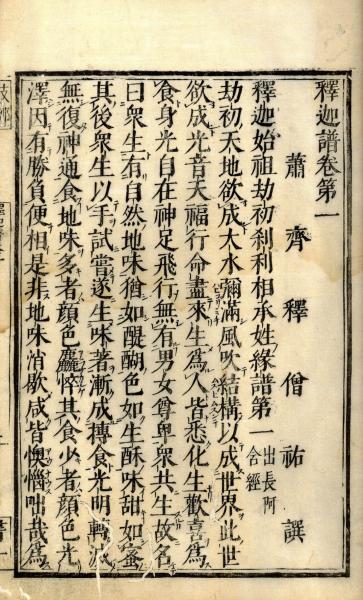 釋迦譜卷第一
蕭齊釋僧祐譔
釋迦始祖劫初刹利相承姓緣譜第一出長阿含經
劫初天地欲成大水彌滿風吹結構以成世界此世
欲成光音天福行命盡來生爲人皆悉化生歡喜爲
食身光自在神足飛行無有男女尊卑衆共生故名
曰衆生有自然地味猶如醍醐色如生酥味甜如蜜
其後衆生以手試嘗遂生味著漸成摶食光明轉滅
無復神通食地味多者顏色麤悴其食少者顏色光
澤因有勝負便相是非地味消歇咸皆懊惱咄哉爲